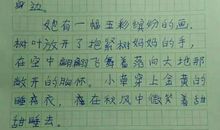 身边。
她有一幅五彩缤纷的画，
树叶放开了抱紧树妈妈的手，
在空中翩翩飞舞着落向大地那
敞开的胸怀。小草穿上金黄的
睡衣衣，在秋风中微笑着甜
甜睡去。